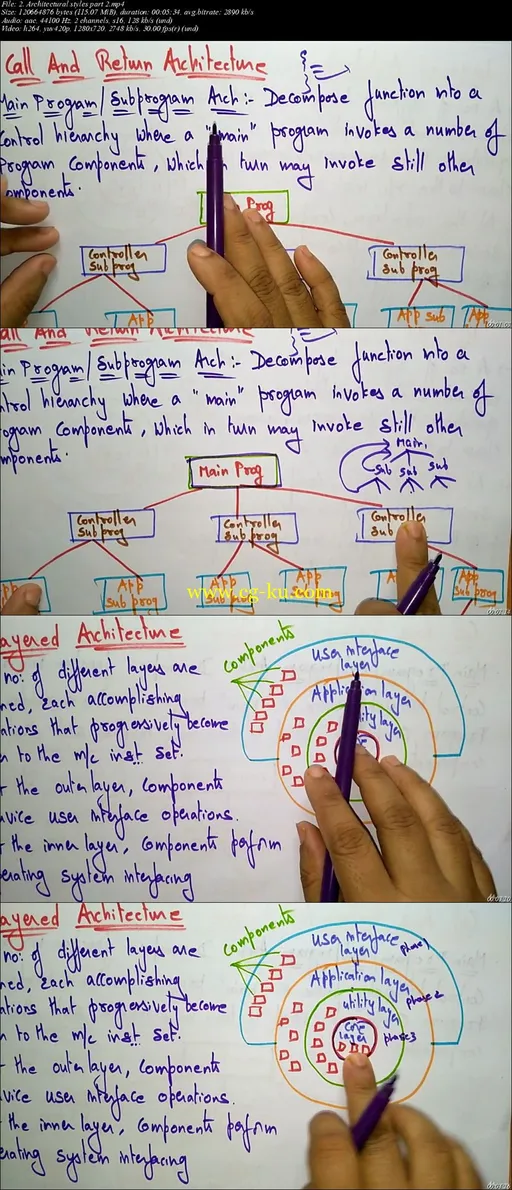 File: 2. Architectural styles part 2.mp4
Size: 120664876 bytes (115.07 MiB), duration: 00:05:34, avg.bitrate: 2890 kb/s
Audio: aac, 44100 Hz, 2 channels, s16, 128 kb/s (und)
Video: h264, yuv420p, 1280x720, 2748 kb/s, 30.00 fps(r) (und)
Call And Return Architecture
Main Program/Subprogram Arch :- Decompose function into a
Control hierarchy where a "main" program invokes a number of
Program Components, which in turn may invoke still other
omponents.
Prog
Controller
Sub prog
Controller
Sub prog
App
App sub
App
all And Return Architecture
in Program/Subprogram Arch :- Decompose function into a
ntrol hierarchy where a "main" program invokes a number of
ogram Components, which in turn may invoke still other
mponents.
Main.
Sub Sub Sub
Main Prog
Controller
Sub prog
Controller
Sub prog
Controller
Sub
App
Sub prog
App
Sub prog
App
Sub prog
App
Sub prog
www.cg-ku.com
ayered Architecture
no: of different layers are
ned, each accomplishing
ations that progressively become
n to the m/c inst set.
the outer layer, Components
vice user interface operations.
the inner layer, Components perform
erating system interfacing
Components
User interface
layer
Application layer
utility layer
ayered Architecture
no: of different layers are
ned, each accomplishing
ations that progressively become
n to the m/c inst set.
the outer layer, Components
vice user interface operations.
the inner layer, Components perform
erating system interfacing
Components
User interface
layer
phase1
Application layer
phase2
utility
layer
Core
layer
phase3